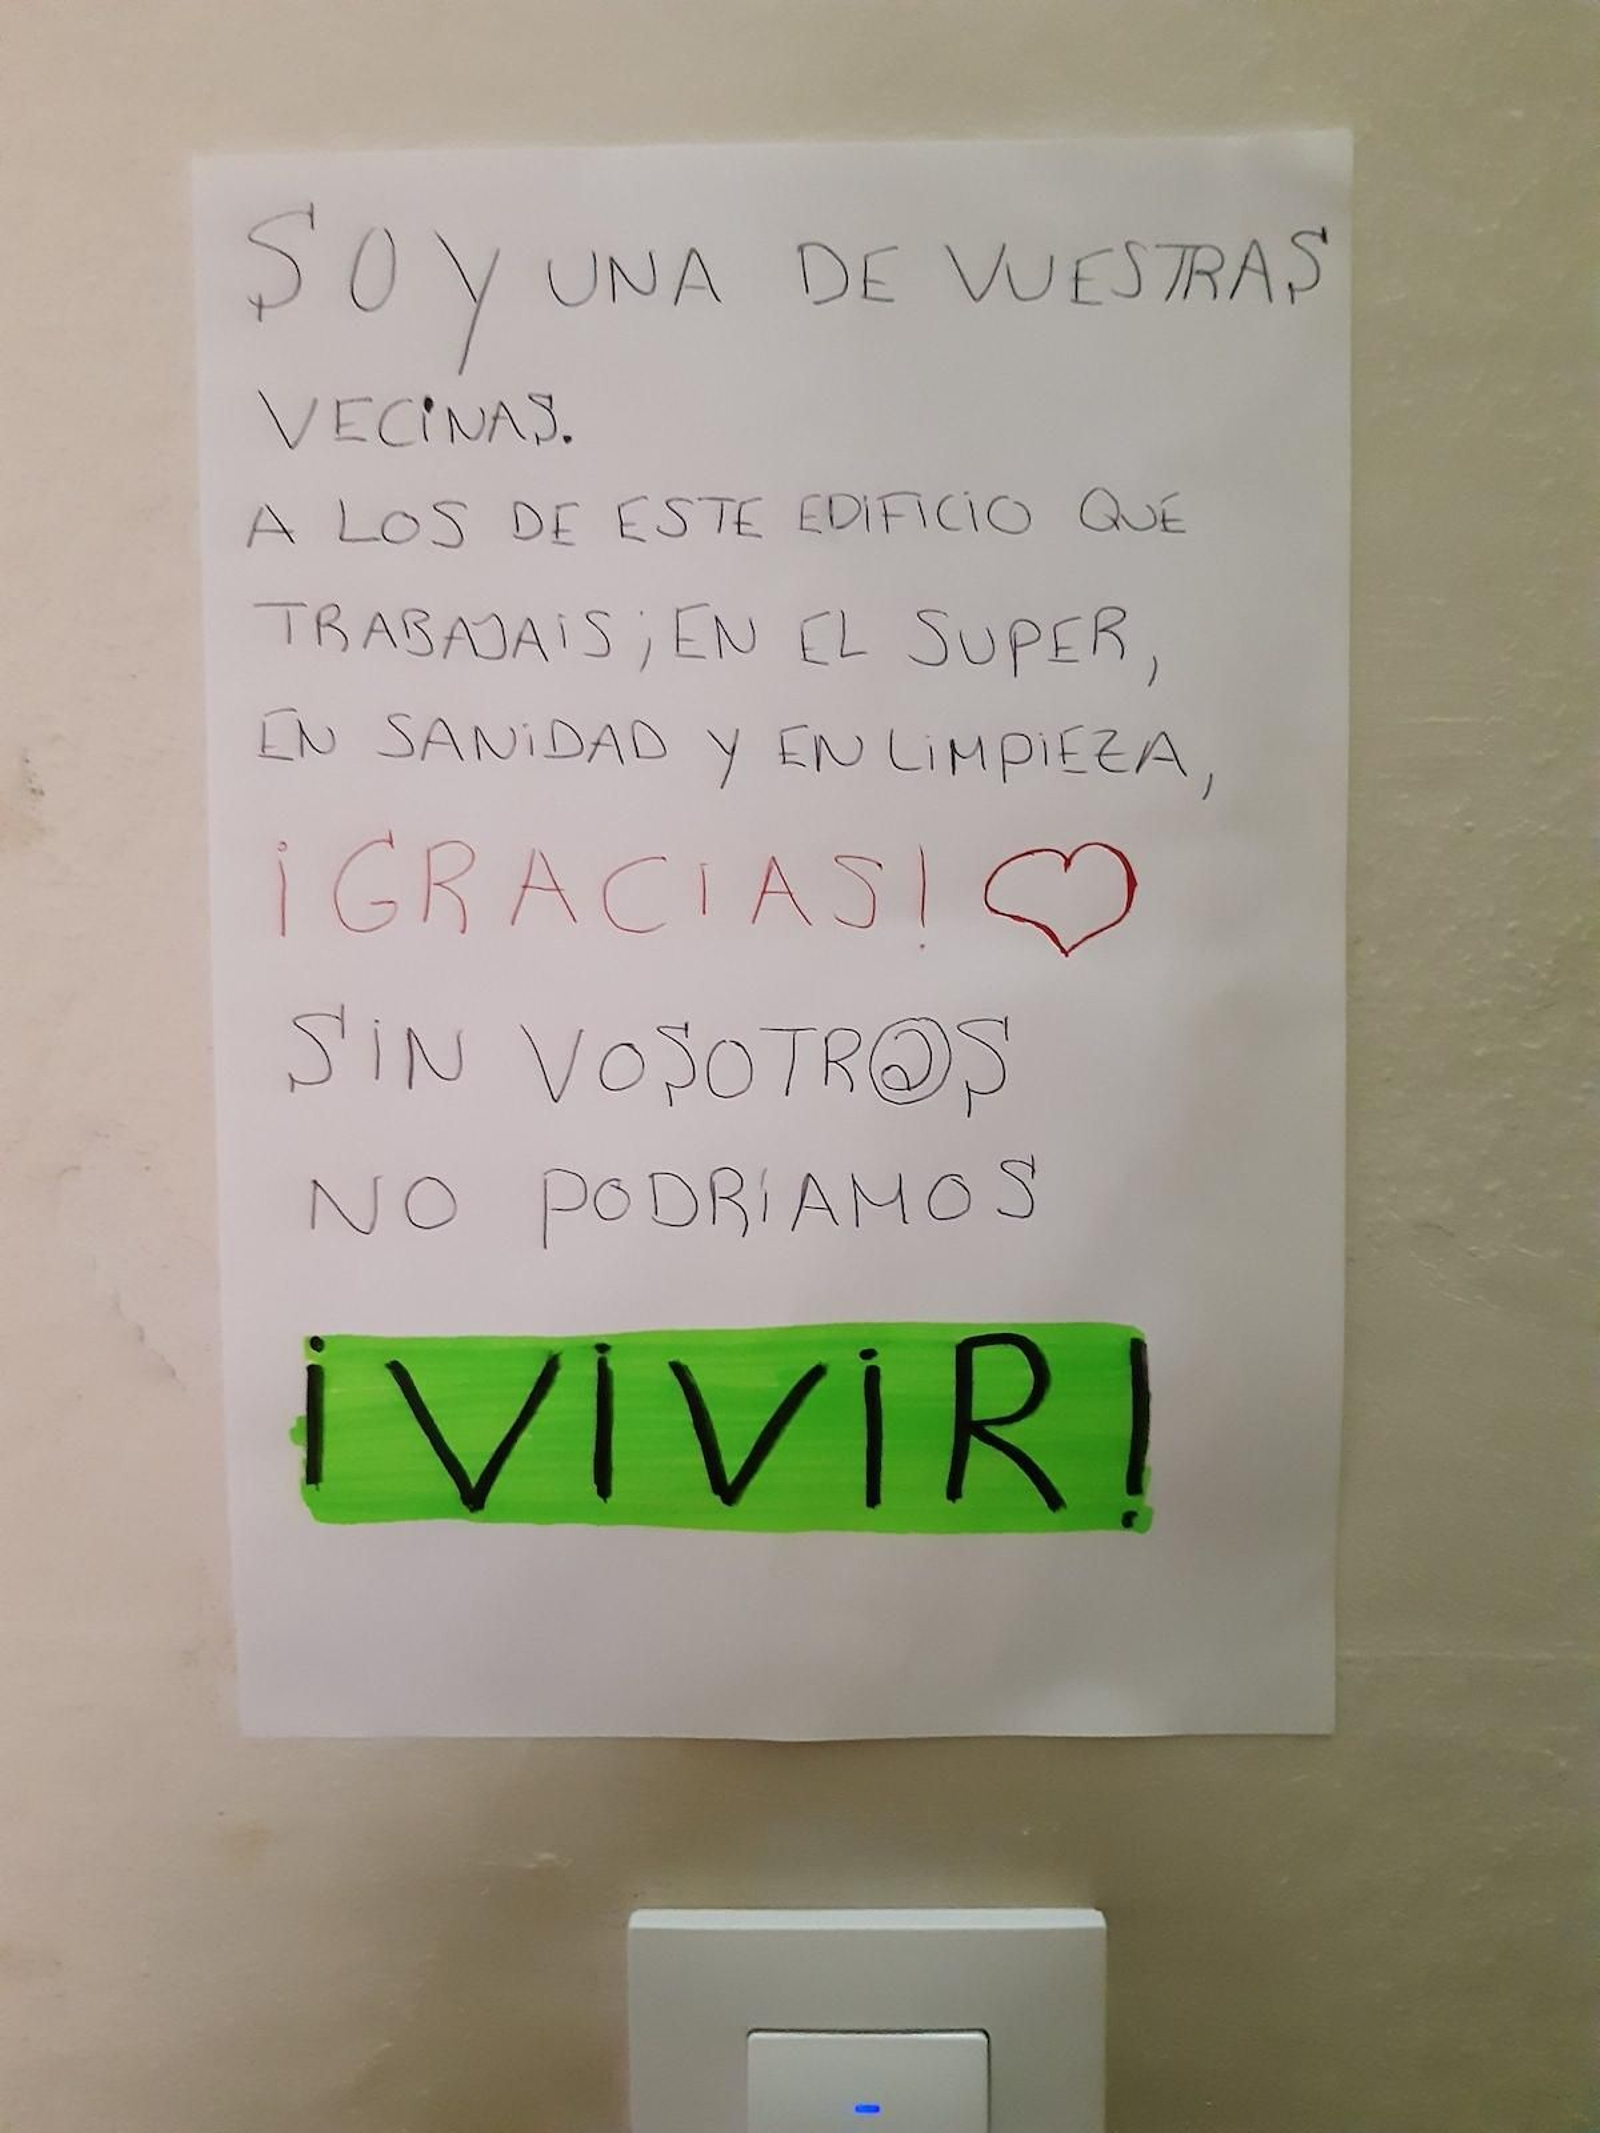 SOY UNA DE VUESTRAS
VECINAS.
A LOS DE ESTE EDIFICIO QUE
TRABAJAIS; EN EL SUPER,
EN SANIDAD Y EN LIMPIEZA,
¡GRACIAS! ♡
SIN VOSOTR@S
NO PODRÍAMOS
¡VIVIR!